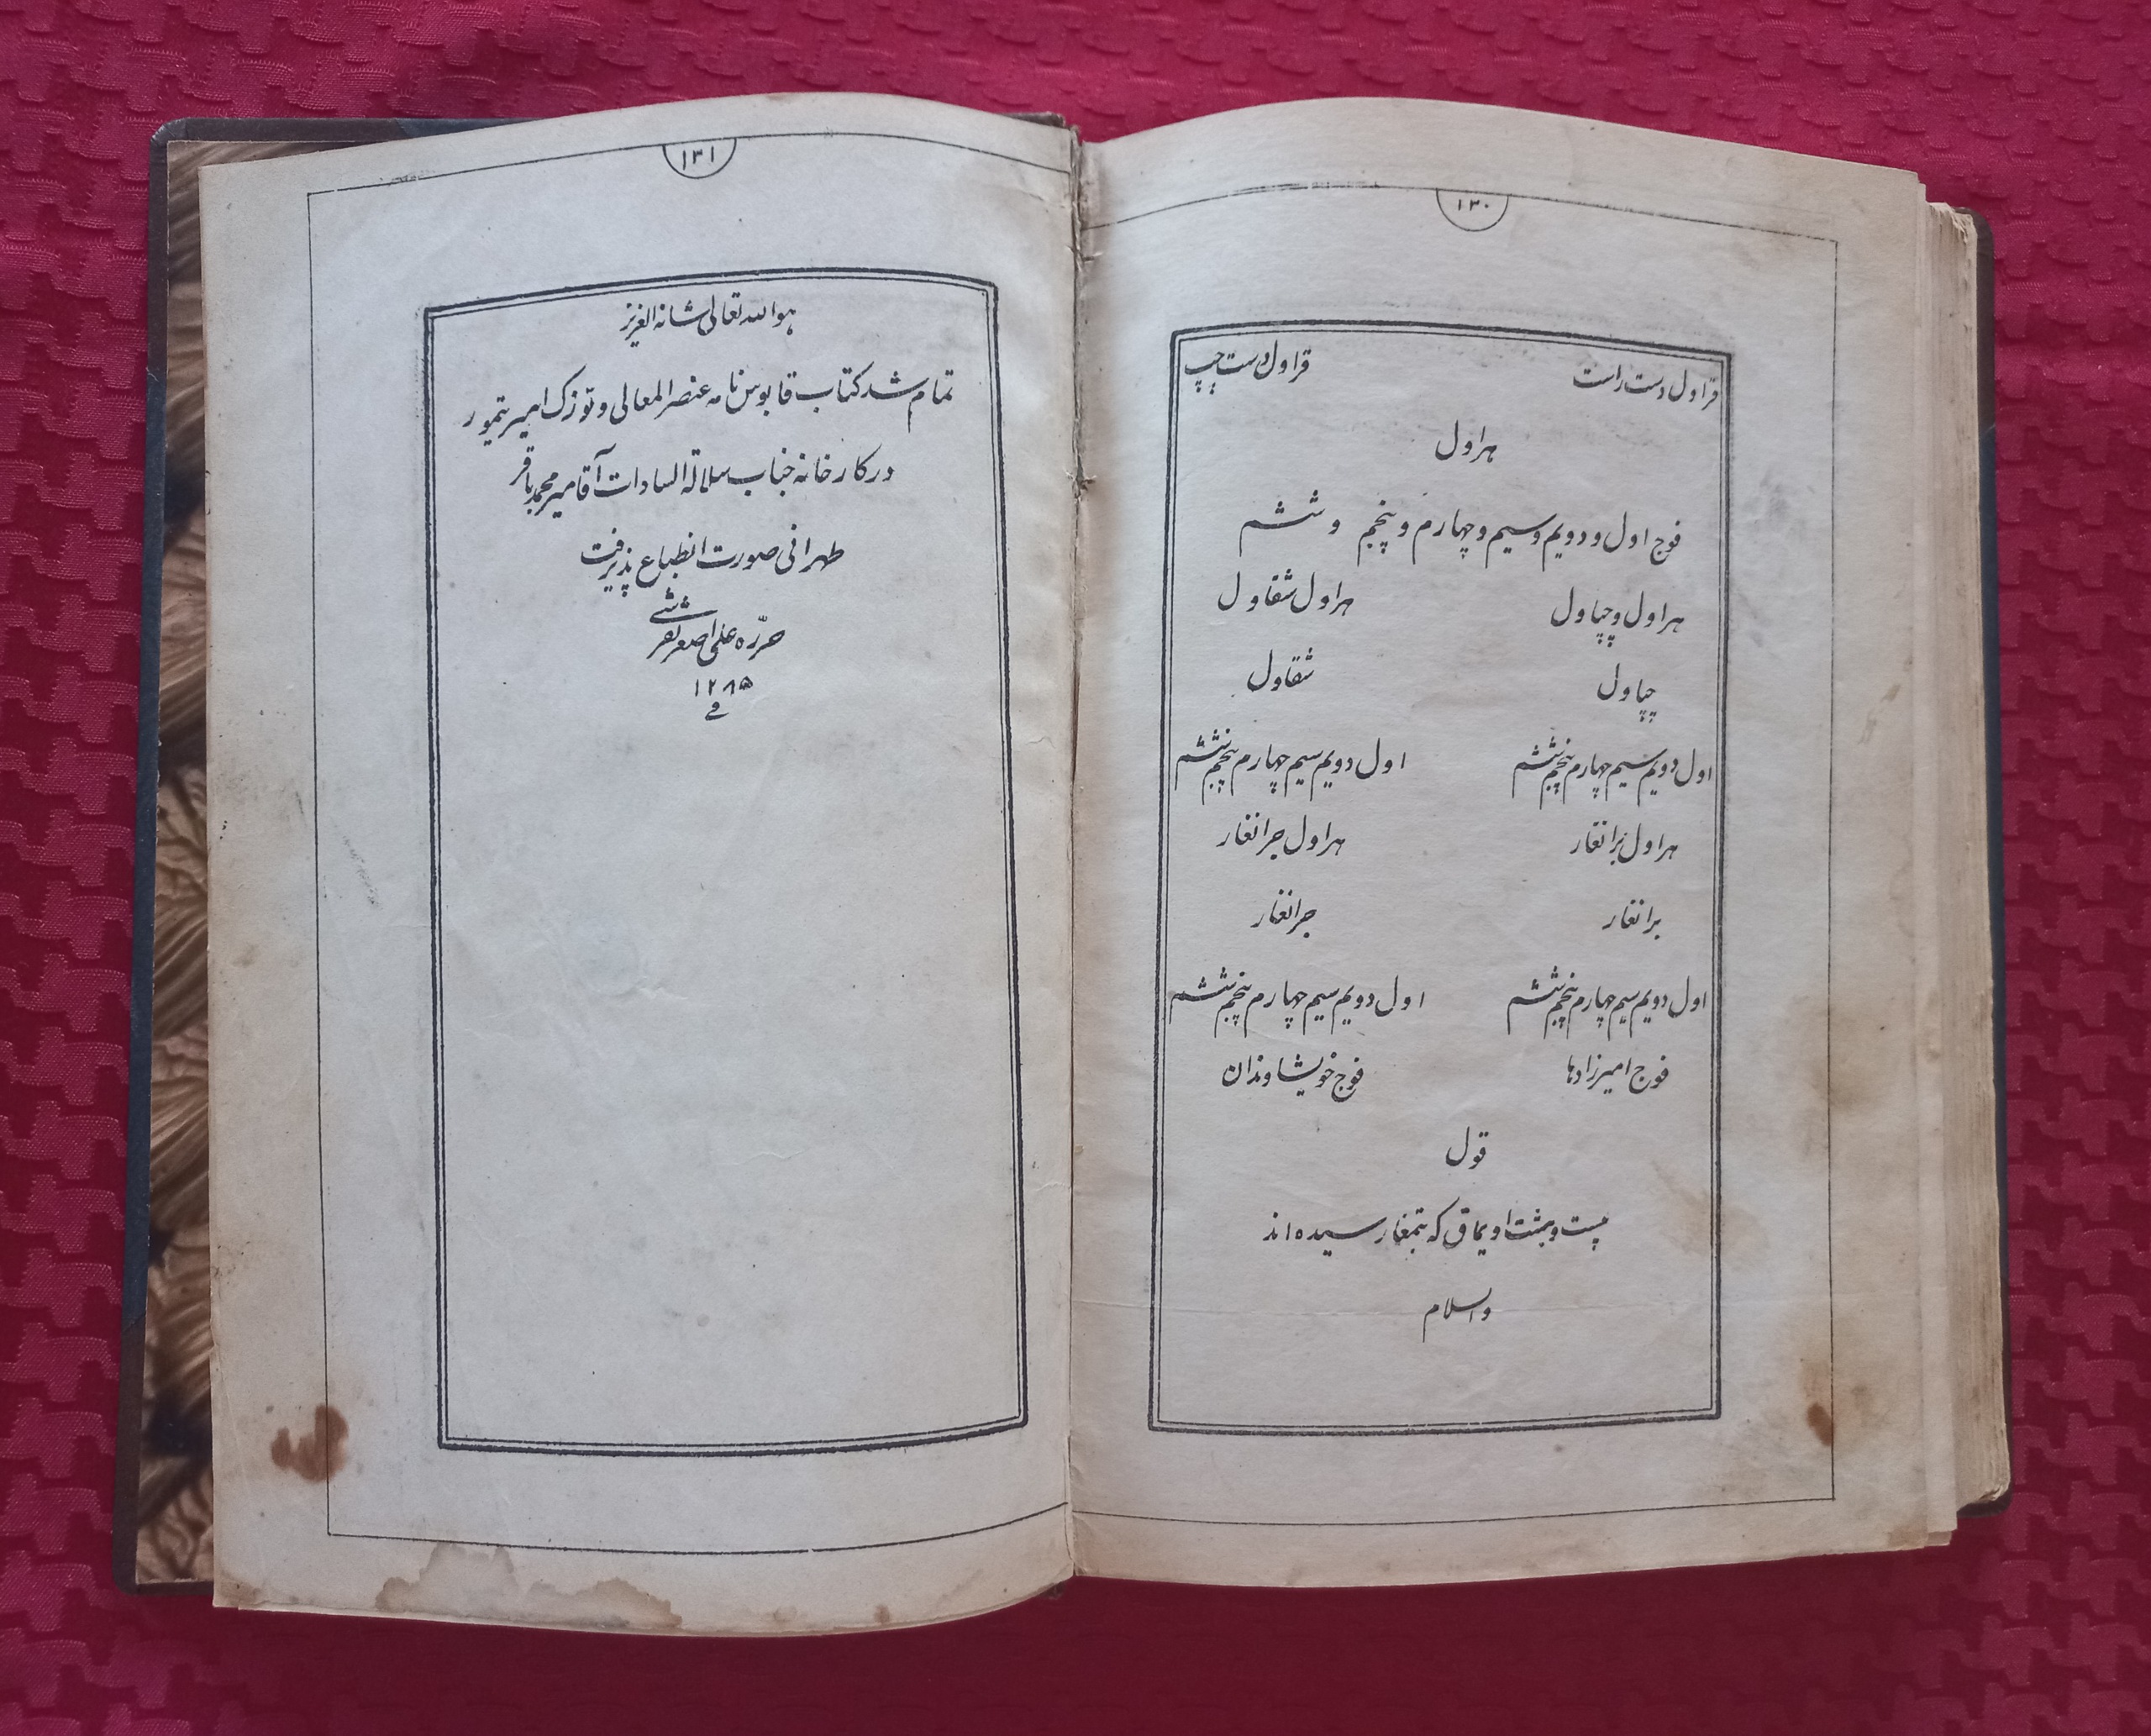 ۱۳۰
قراول دست راست قراول دست چپ
هراول
فوج اول و دویم و سیم و چهارم و پنجم و ششم
هراول و چپاول هراول شقاول
چپاول شقاول
اول دویم سیم چهارم پنجم ششم اول دویم سیم چهارم پنجم ششم
هراول برانغار هراول جرانغار
برانغار جرانغار
اول دویم سیم چهارم پنجم ششم اول دویم سیم چهارم پنجم ششم
فوج امیرزادها فوج خویشاوندان
قول
بیست و هشت اویماق که بتمغا رسیده اند
والسلام
۱۳۱
هو الله تعالی شانه العزیز
تمام شد کتاب قابوس نامه عنصر المعالی و توزک امیر تیمور
در کارخانه جناب سلالة السادات آقا میر محمد باقر
طهرانی صورت انطباع پذیرفت
حرّره علی اصغر تفرشی
۱۲۸۵